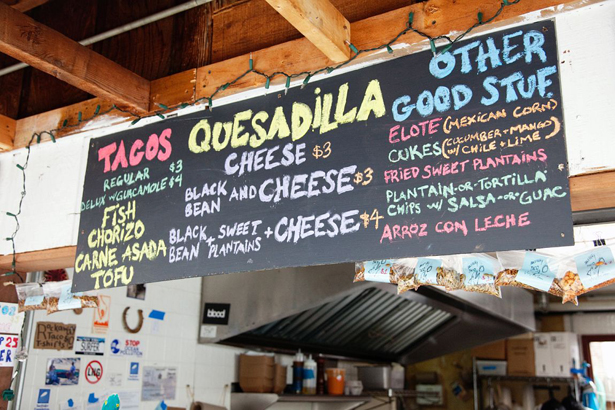 TACOS
REGULAR $3
DELUX w/GUACAMOLE $4
FISH
CHORIZO
CARNE ASADA
TOFU
QUESADILLA
CHEESE $3
BLACK BEAN AND CHEESE $3
BLACK + SWEET + CHEESE $4
BEAN PLANTAINS
OTHER
GOOD STUF.
ELOTE (MEXICAN CORN)
CUKES (CUCUMBER + MANGO
w/ CHILE + LIME)
FRIED SWEET PLANTAINS
PLANTAIN-OR-TORTILLA
CHIPS w/ SALSA-OR-GUAC
ARROZ CON LECHE
blood
LNG